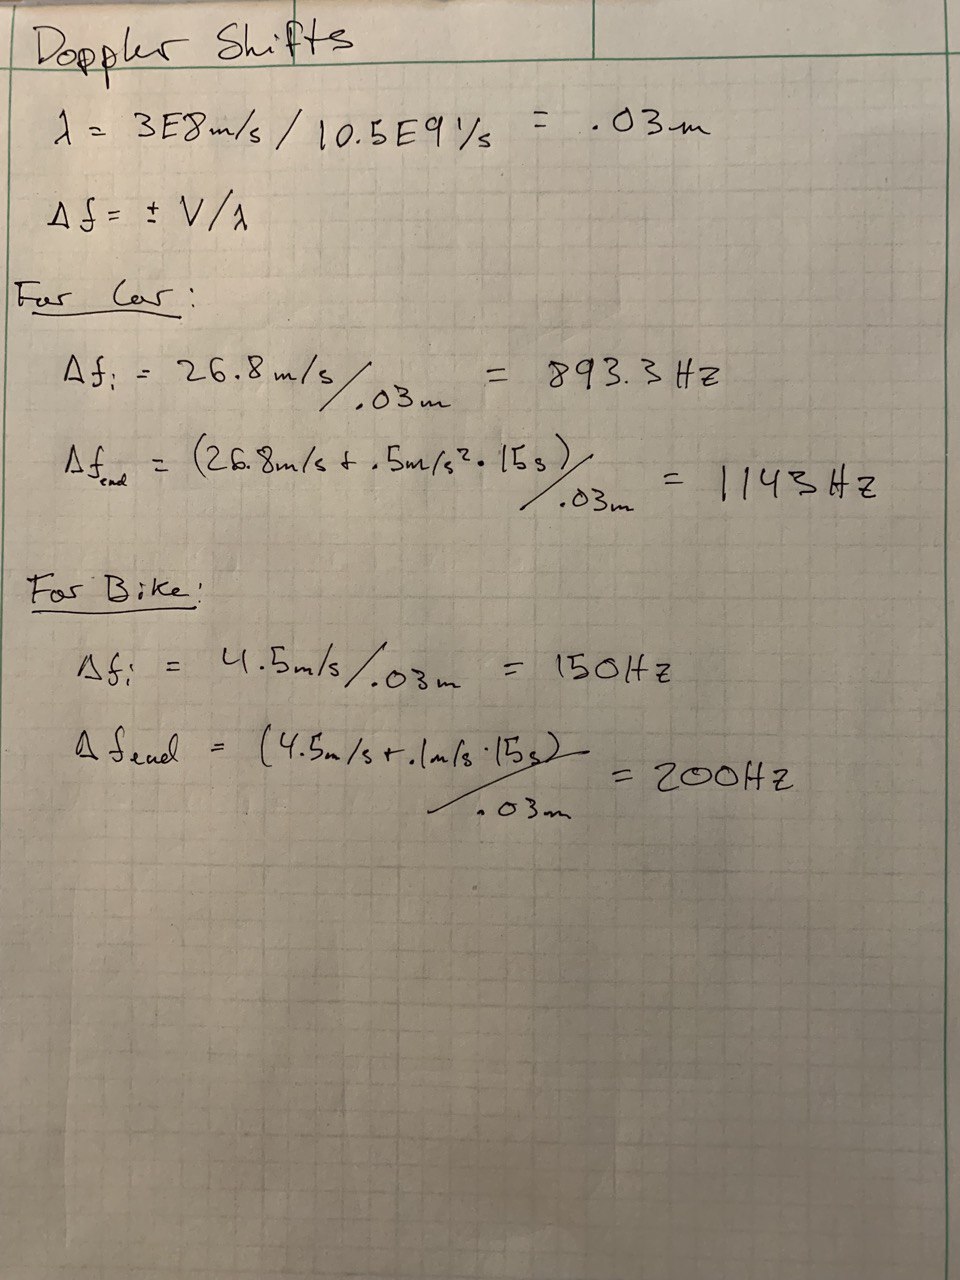 Doppler Shifts
λ = 3E8m/s / 10.5E9 1/s = .03m
Δf = ± V/λ
For Car:
Δfi = 26.8m/s/.03m = 893.3Hz
Δfend = (26.8m/s + .5m/s²·15s)/.03m = 1143Hz
For Bike:
Δfi = 4.5m/s/.03m = 150Hz
Δfend = (4.5m/s + .1m/s·15s)/.03m = 200Hz